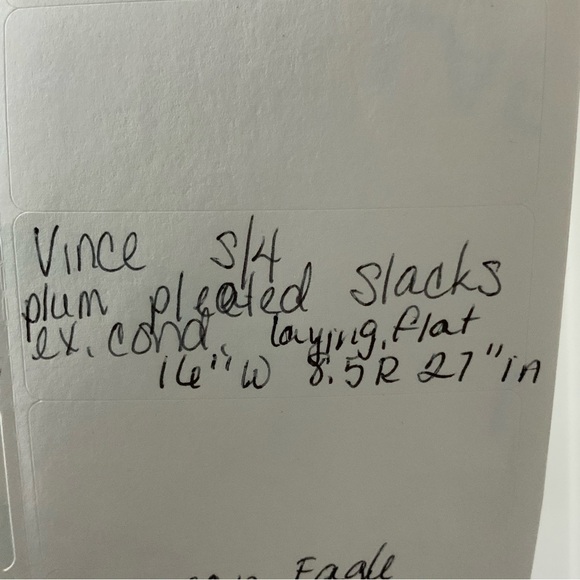 Vince S/4
plum pleated slacks
ex. cond. laying flat
16" W 8.5 R 27" in
Eagle